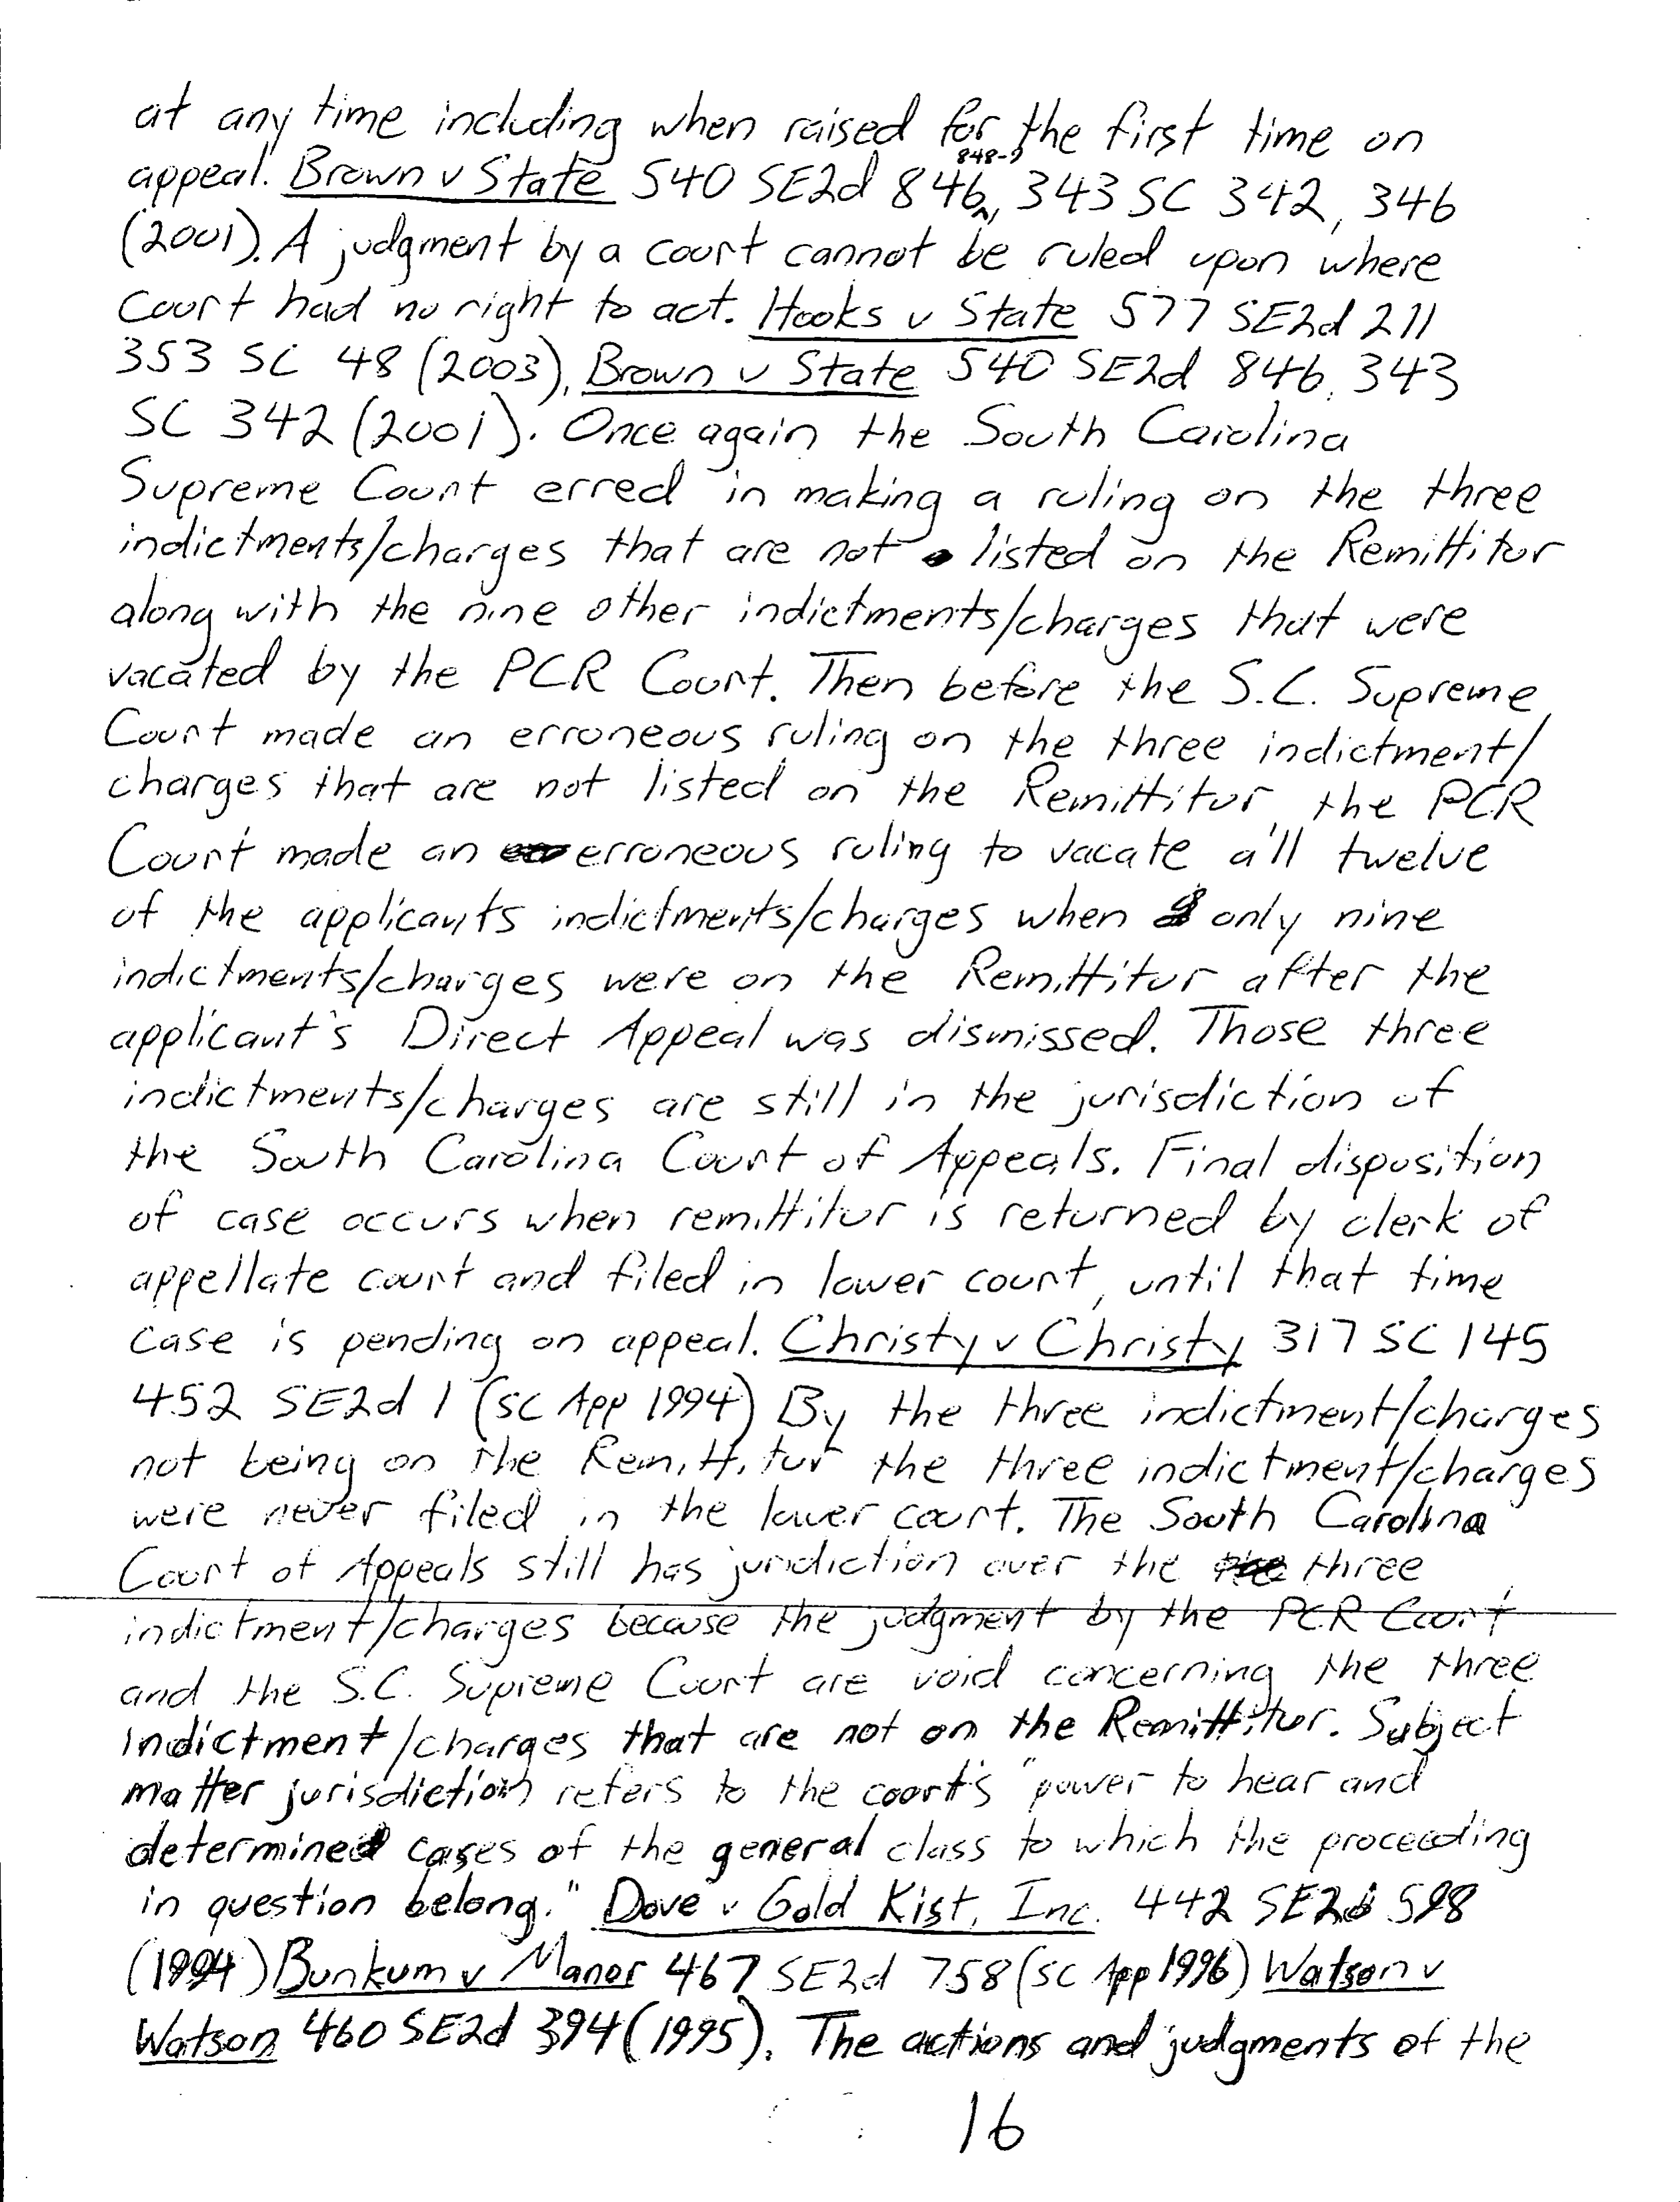 at any time including when raised for the first time on
appeal. Brown v State 540 SE2d 846, 848-9 343 SC 342, 346
(2001). A judgment by a court cannot be ruled upon where
Court had no right to act. Hooks v State 577 SE2d 211
353 SC 48 (2003), Brown v State 540 SE2d 846, 343
SC 342 (2001). Once again the South Carolina
Supreme Court erred in making a ruling on the three
indictments/charges that are not listed on the Remittitur
along with the nine other indictments/charges that were
vacated by the PCR Court. Then before the S.C. Supreme
Court made an erroneous ruling on the three indictment/
charges that are not listed on the Remittitur, the PCR
Court made an erroneous ruling to vacate all twelve
of the applicants indictments/charges when only nine
indictments/charges were on the Remittitur after the
applicant's Direct Appeal was dismissed. Those three
indictments/charges are still in the jurisdiction of
the South Carolina Court of Appeals. Final disposition
of case occurs when remittitur is returned by clerk of
appellate court and filed in lower court, until that time
case is pending on appeal. Christy v Christy 317 SC 145
452 SE2d 1 (SC App 1994) By the three indictment/charges
not being on the Remittitur the three indictment/charges
were never filed in the lower court. The South Carolina
Court of Appeals still has juridiction over the three
indictment/charges because the judgment by the PCR Court
and the S.C. Supreme Court are void concerning the three
indictment/charges that are not on the Remittitur. Subject
matter jurisdiction refers to the court's "power to hear and
determine cases of the general class to which the proceeding
in question belong." Dove v Gold Kist, Inc. 442 SE2d 598
(1994) Bunkum v Manor 467 SE2d 758 (SC App 1996) Watson v
Watson 460 SE2d 394 (1995). The actions and judgments of the
16